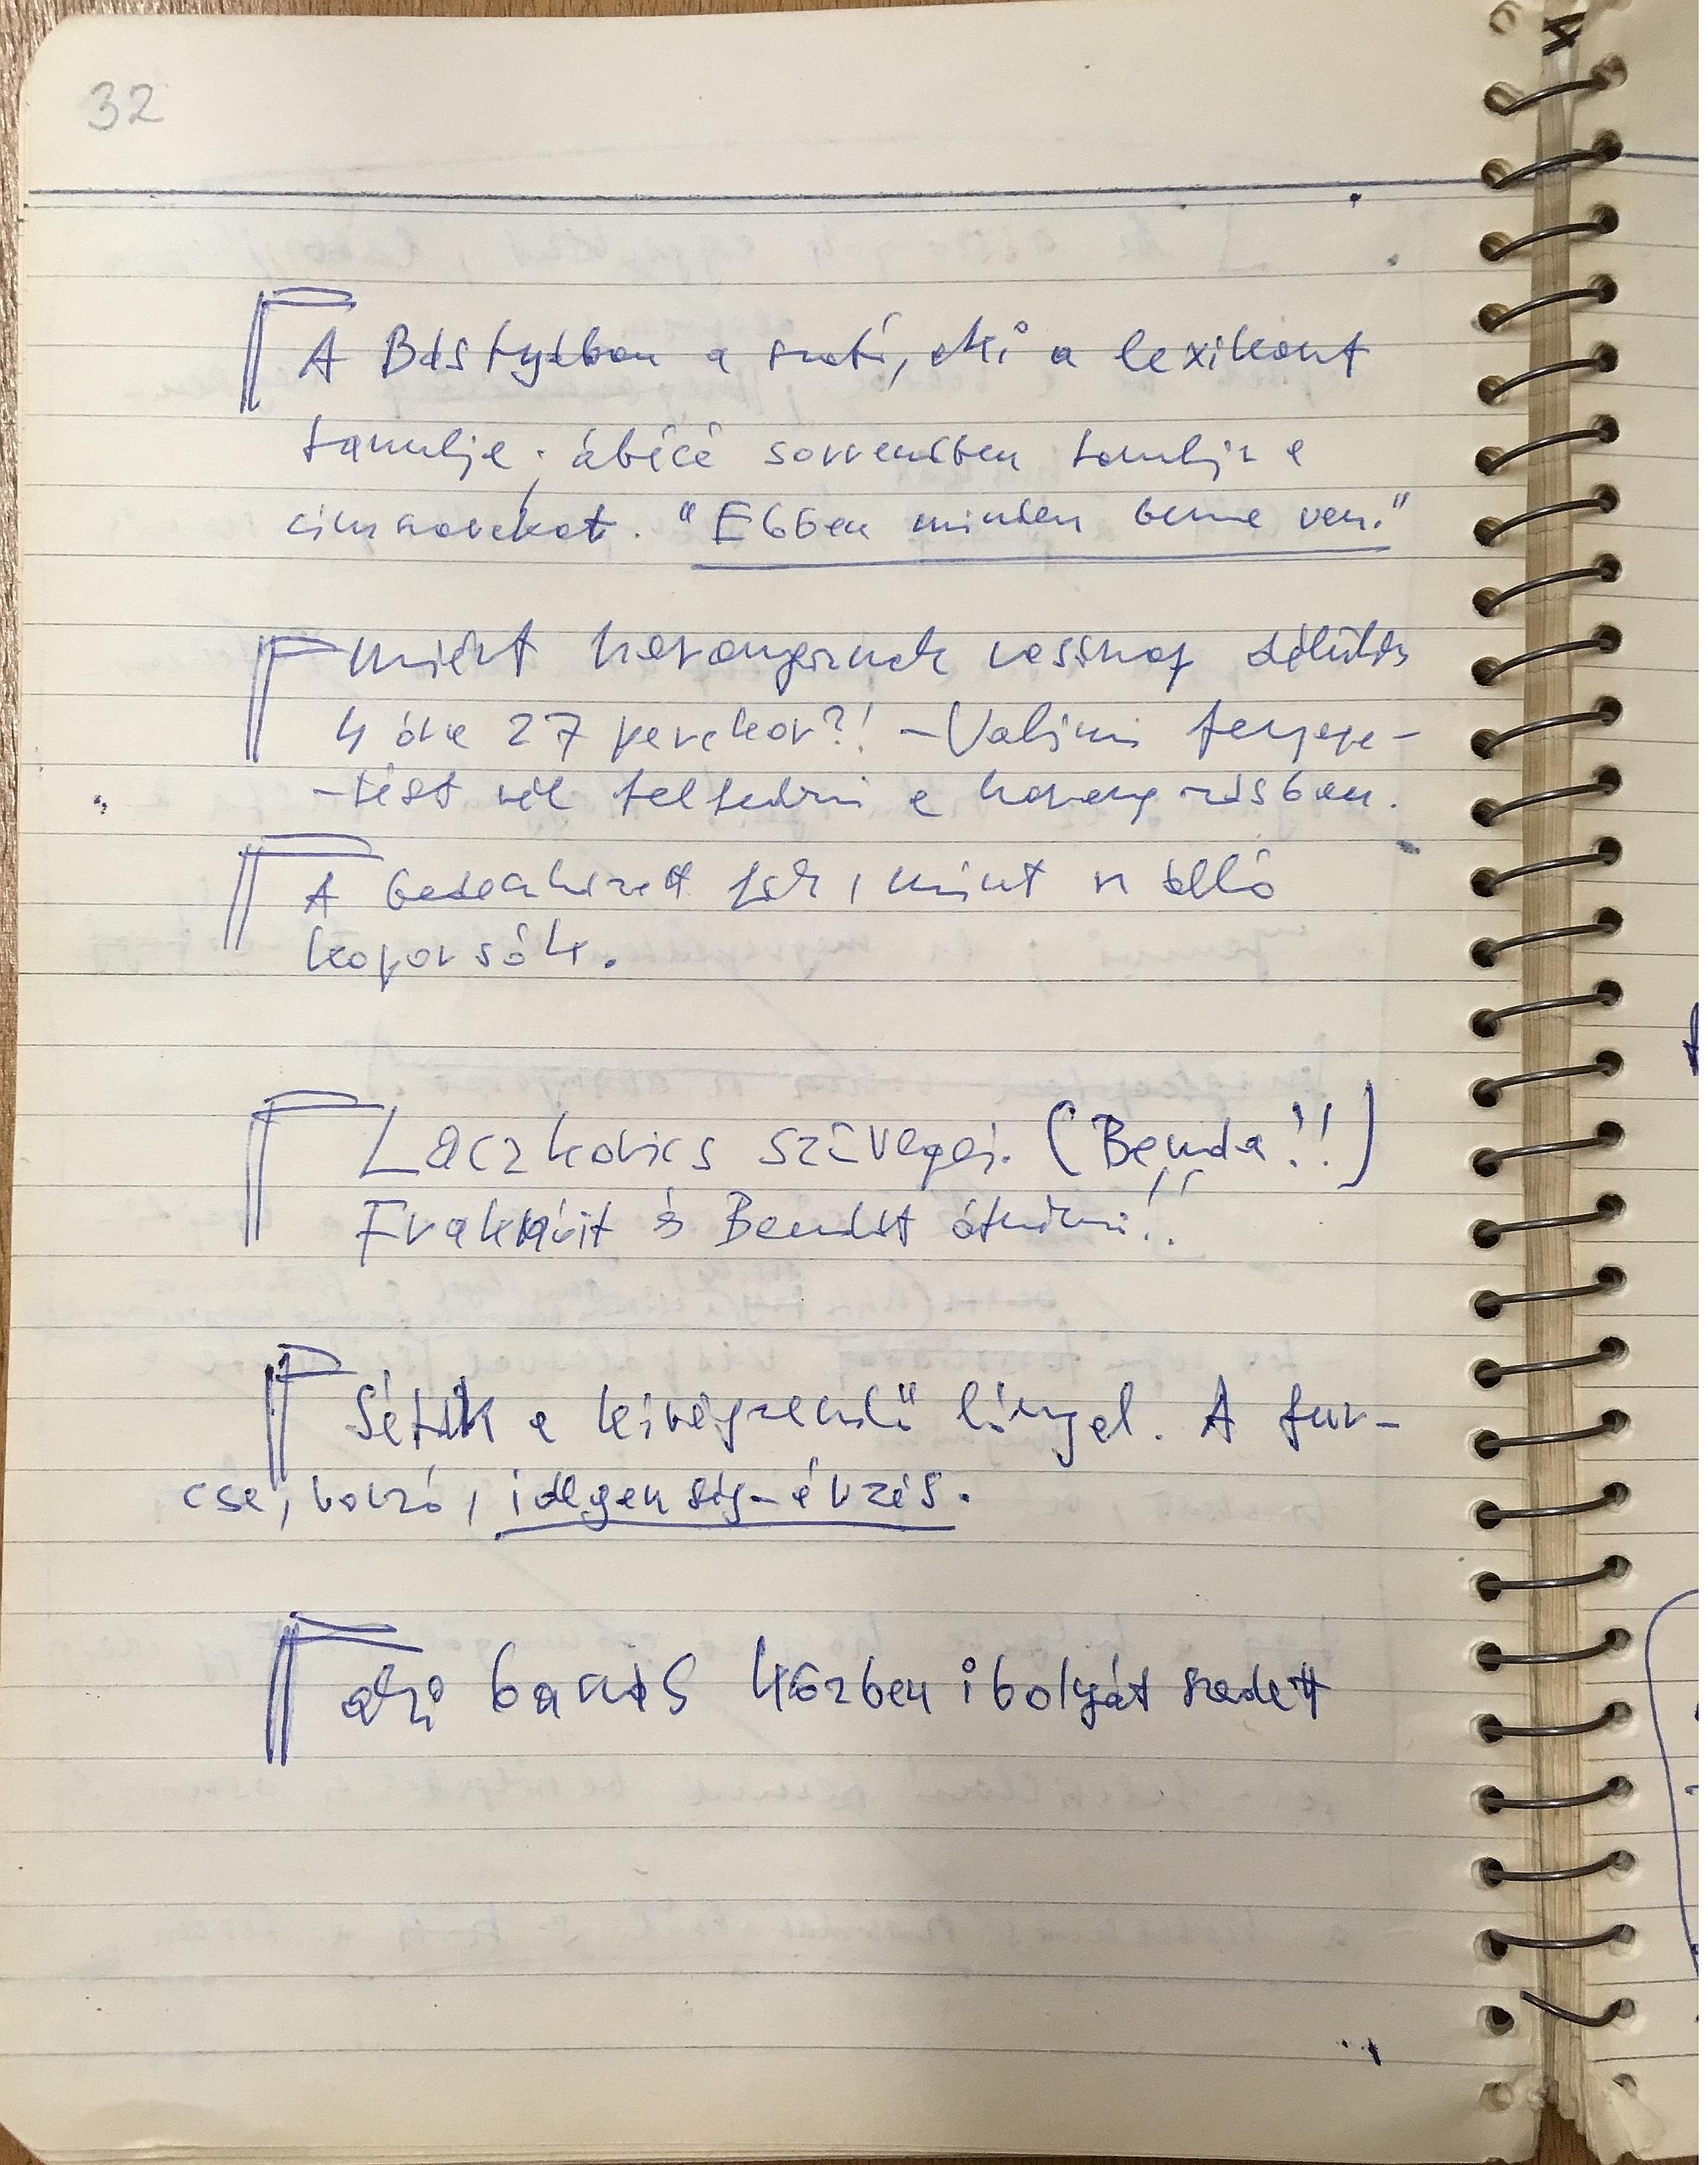 32
A Bástyában a srác, aki a lexikont
tanulja; ábécé sorrendben tanulja a
címszavakat. "Ebben minden benne van."
Miért harangoznak vasárnap délután
4 óra 27 perckor?! – Valami fenyege-
-tést vél felfedezni a harangozásban.
A bedeszkázott fák, mint az álló
koporsók.
Laczkovics szövegei. (Benda!!)
Fraknóit és Bendát átnézni!!
Séták a kivégzendő lánnyal. A fur-
csa, borzó, idegenség-érzés.
aki baszás közben ibolyát szedett